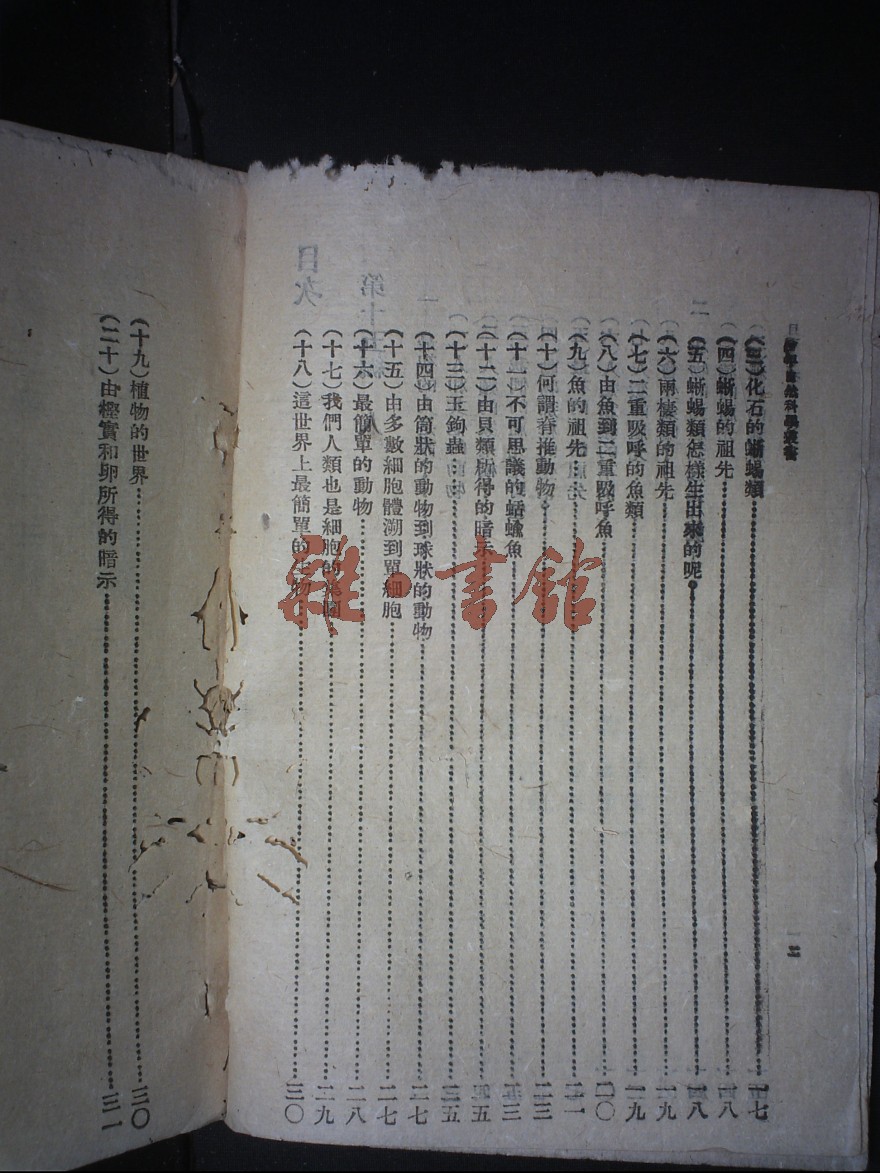 自然科學叢書
二
(三)化石的蜥蜴類 一七
(四)蜥蜴的祖先 一八
(五)蜥蜴類怎樣生出來的呢 一八
(六)兩棲類的祖先 一九
(七)二重吸呼的魚類 一九
(八)由魚到二重吸呼魚 二〇
(九)魚的祖先 二一
(十)何謂脊推動物 二三
(十一)不可思議的蝤蠐魚
(十二)由貝類所得的暗示 二五
(十三)玉鉤蟲 二五
(十四)由筒狀的動物到球狀的動物 二七
(十五)由多數細胞體溯到單細胞 二七
(十六)最簡單的動物 二八
(十七)我們人類也是細胞的 二九
(十八)這世界上最簡單的生物 三〇
(十九)植物的世界 三〇
(二十)由樫實和卵所得的暗示 三一
雜·書館